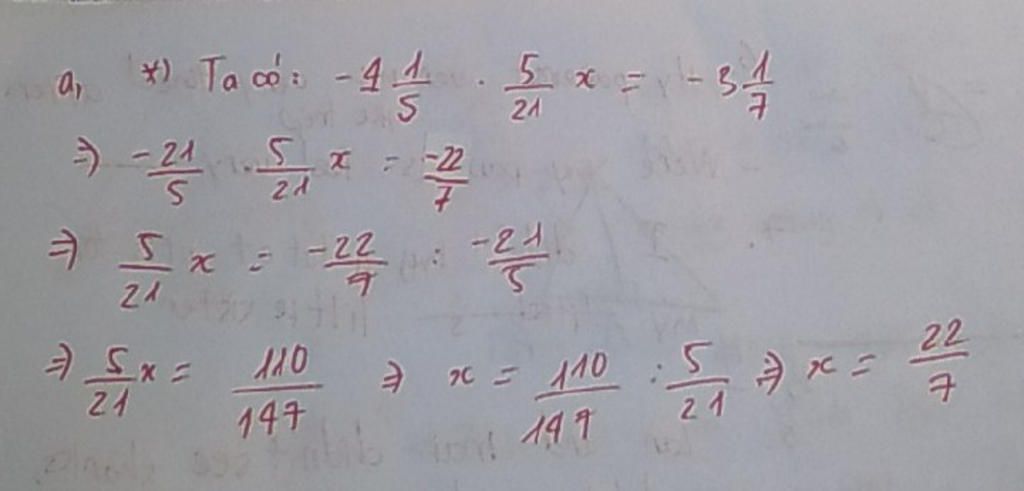 a, *) Ta có: -4 1/5 . 5/21 x = -3 1/7
=> -21/5 . 5/21 x = -22/7
=> 5/21 x = -22/7 : -21/5
=> 5/21 x = 110/147 => x = 110/147 : 5/21 => x = 22/7